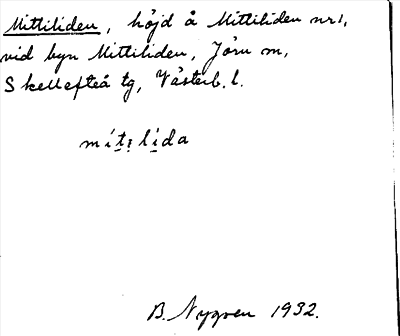 Mittiliden, höjd å Mittiliden nr 1,
vid byn Mittiliden, Jörn sn,
Skellefteå tg, Västerb. l.
mít̠ı̣lí̠da
B. Nygren 1932.